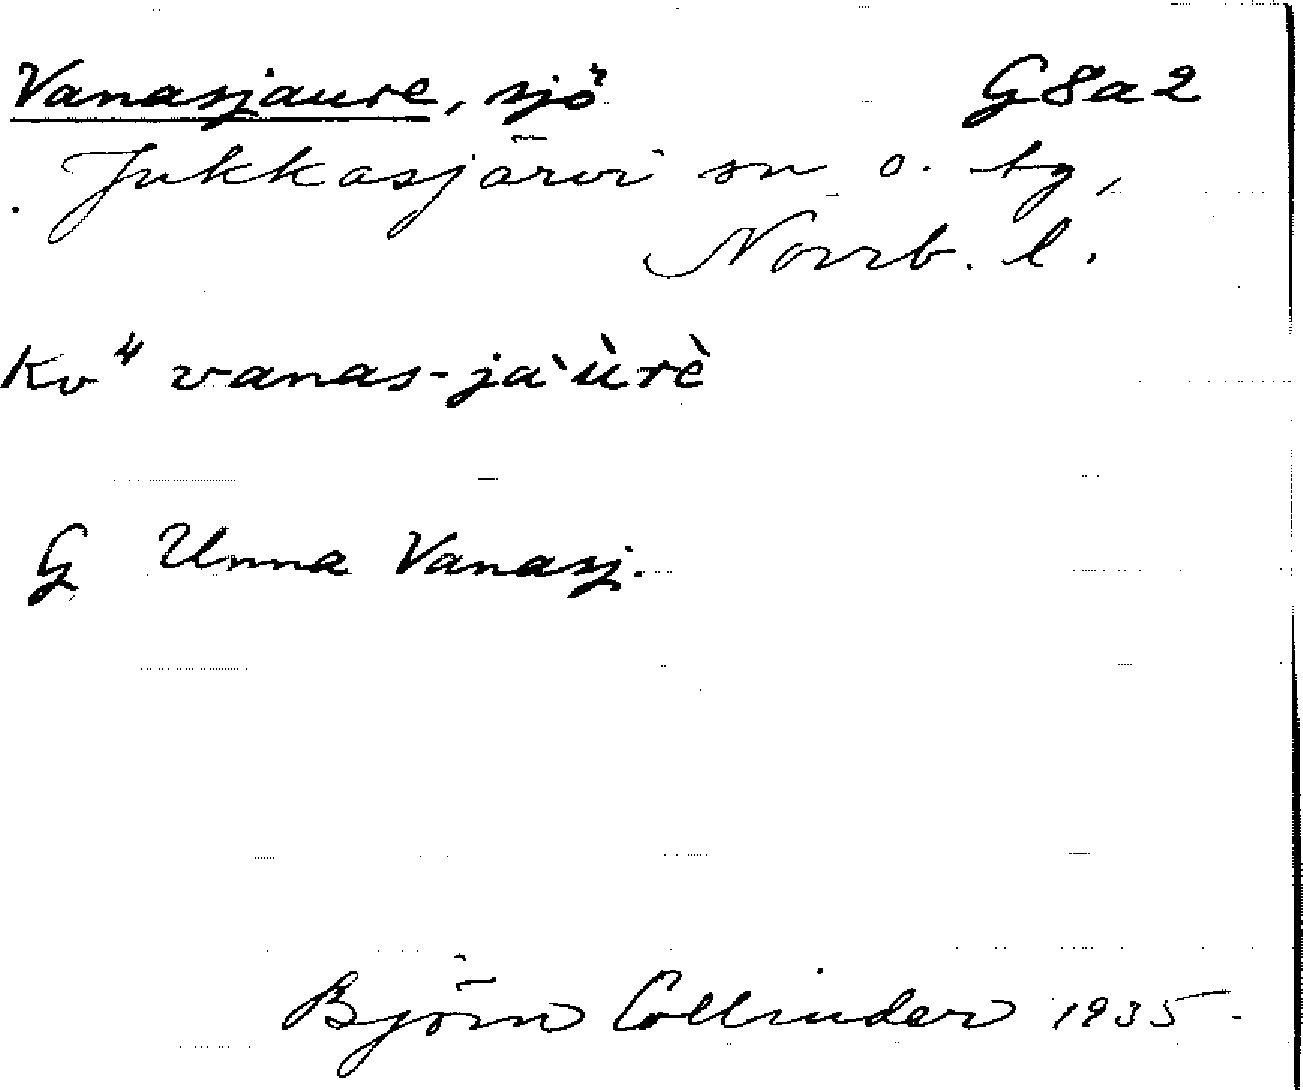 Vanasjaure, sjö G8a2
Jukkasjärvi sn o. tg,
Norrb. l.
Kv" vanas-ja`ùrè
G Unna Vanasj.
Björn Collinder 1935.